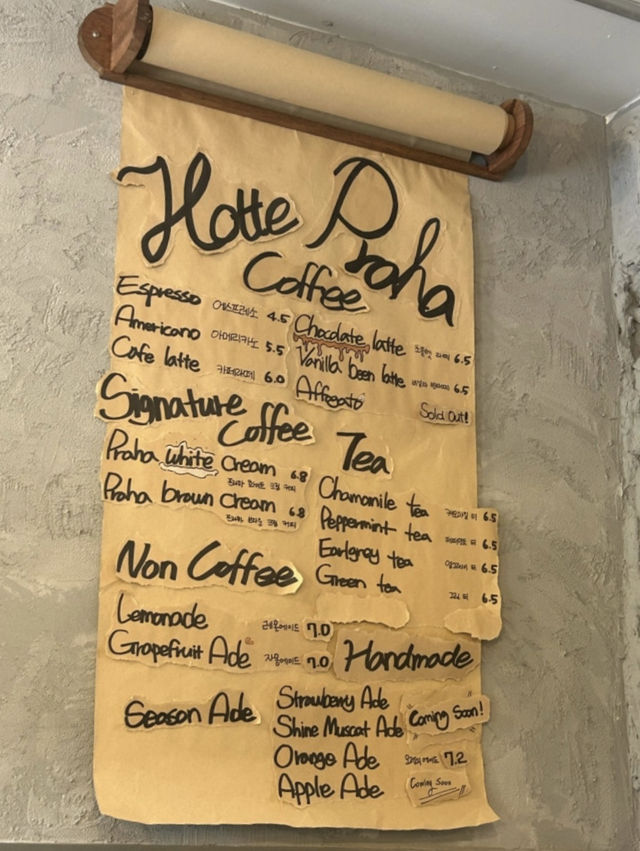 Hotte Praha
Coffee
Espresso 에스프레소 4.5
Americano 아메리카노 5.5
Cafe latte 카페라떼 6.0
Chocolate latte 초콜릿 라떼 6.5
Vanilla been latte 바닐라 빈라떼 6.5
Affogato Sold out!
Signature
Coffee
Praha white cream 6.8
프라하 화이트 크림 커피
Praha brown cream 6.8
프라하 브라운 크림 커피
Tea
Chamomile tea 캐모마일 티 6.5
Peppermint tea 페퍼민트 티 6.5
Earlgrey tea 얼그레이 티 6.5
Green tea 그린 티 6.5
Non Coffee
Lemonade 레몬에이드 7.0
Grapefruit Ade 자몽에이드 7.0
Handmade
Season Ade
Strawberry Ade
Shine Muscat Ade Coming Soon!
Orange Ade 오렌지에이드 7.2
Apple Ade Coming Soon